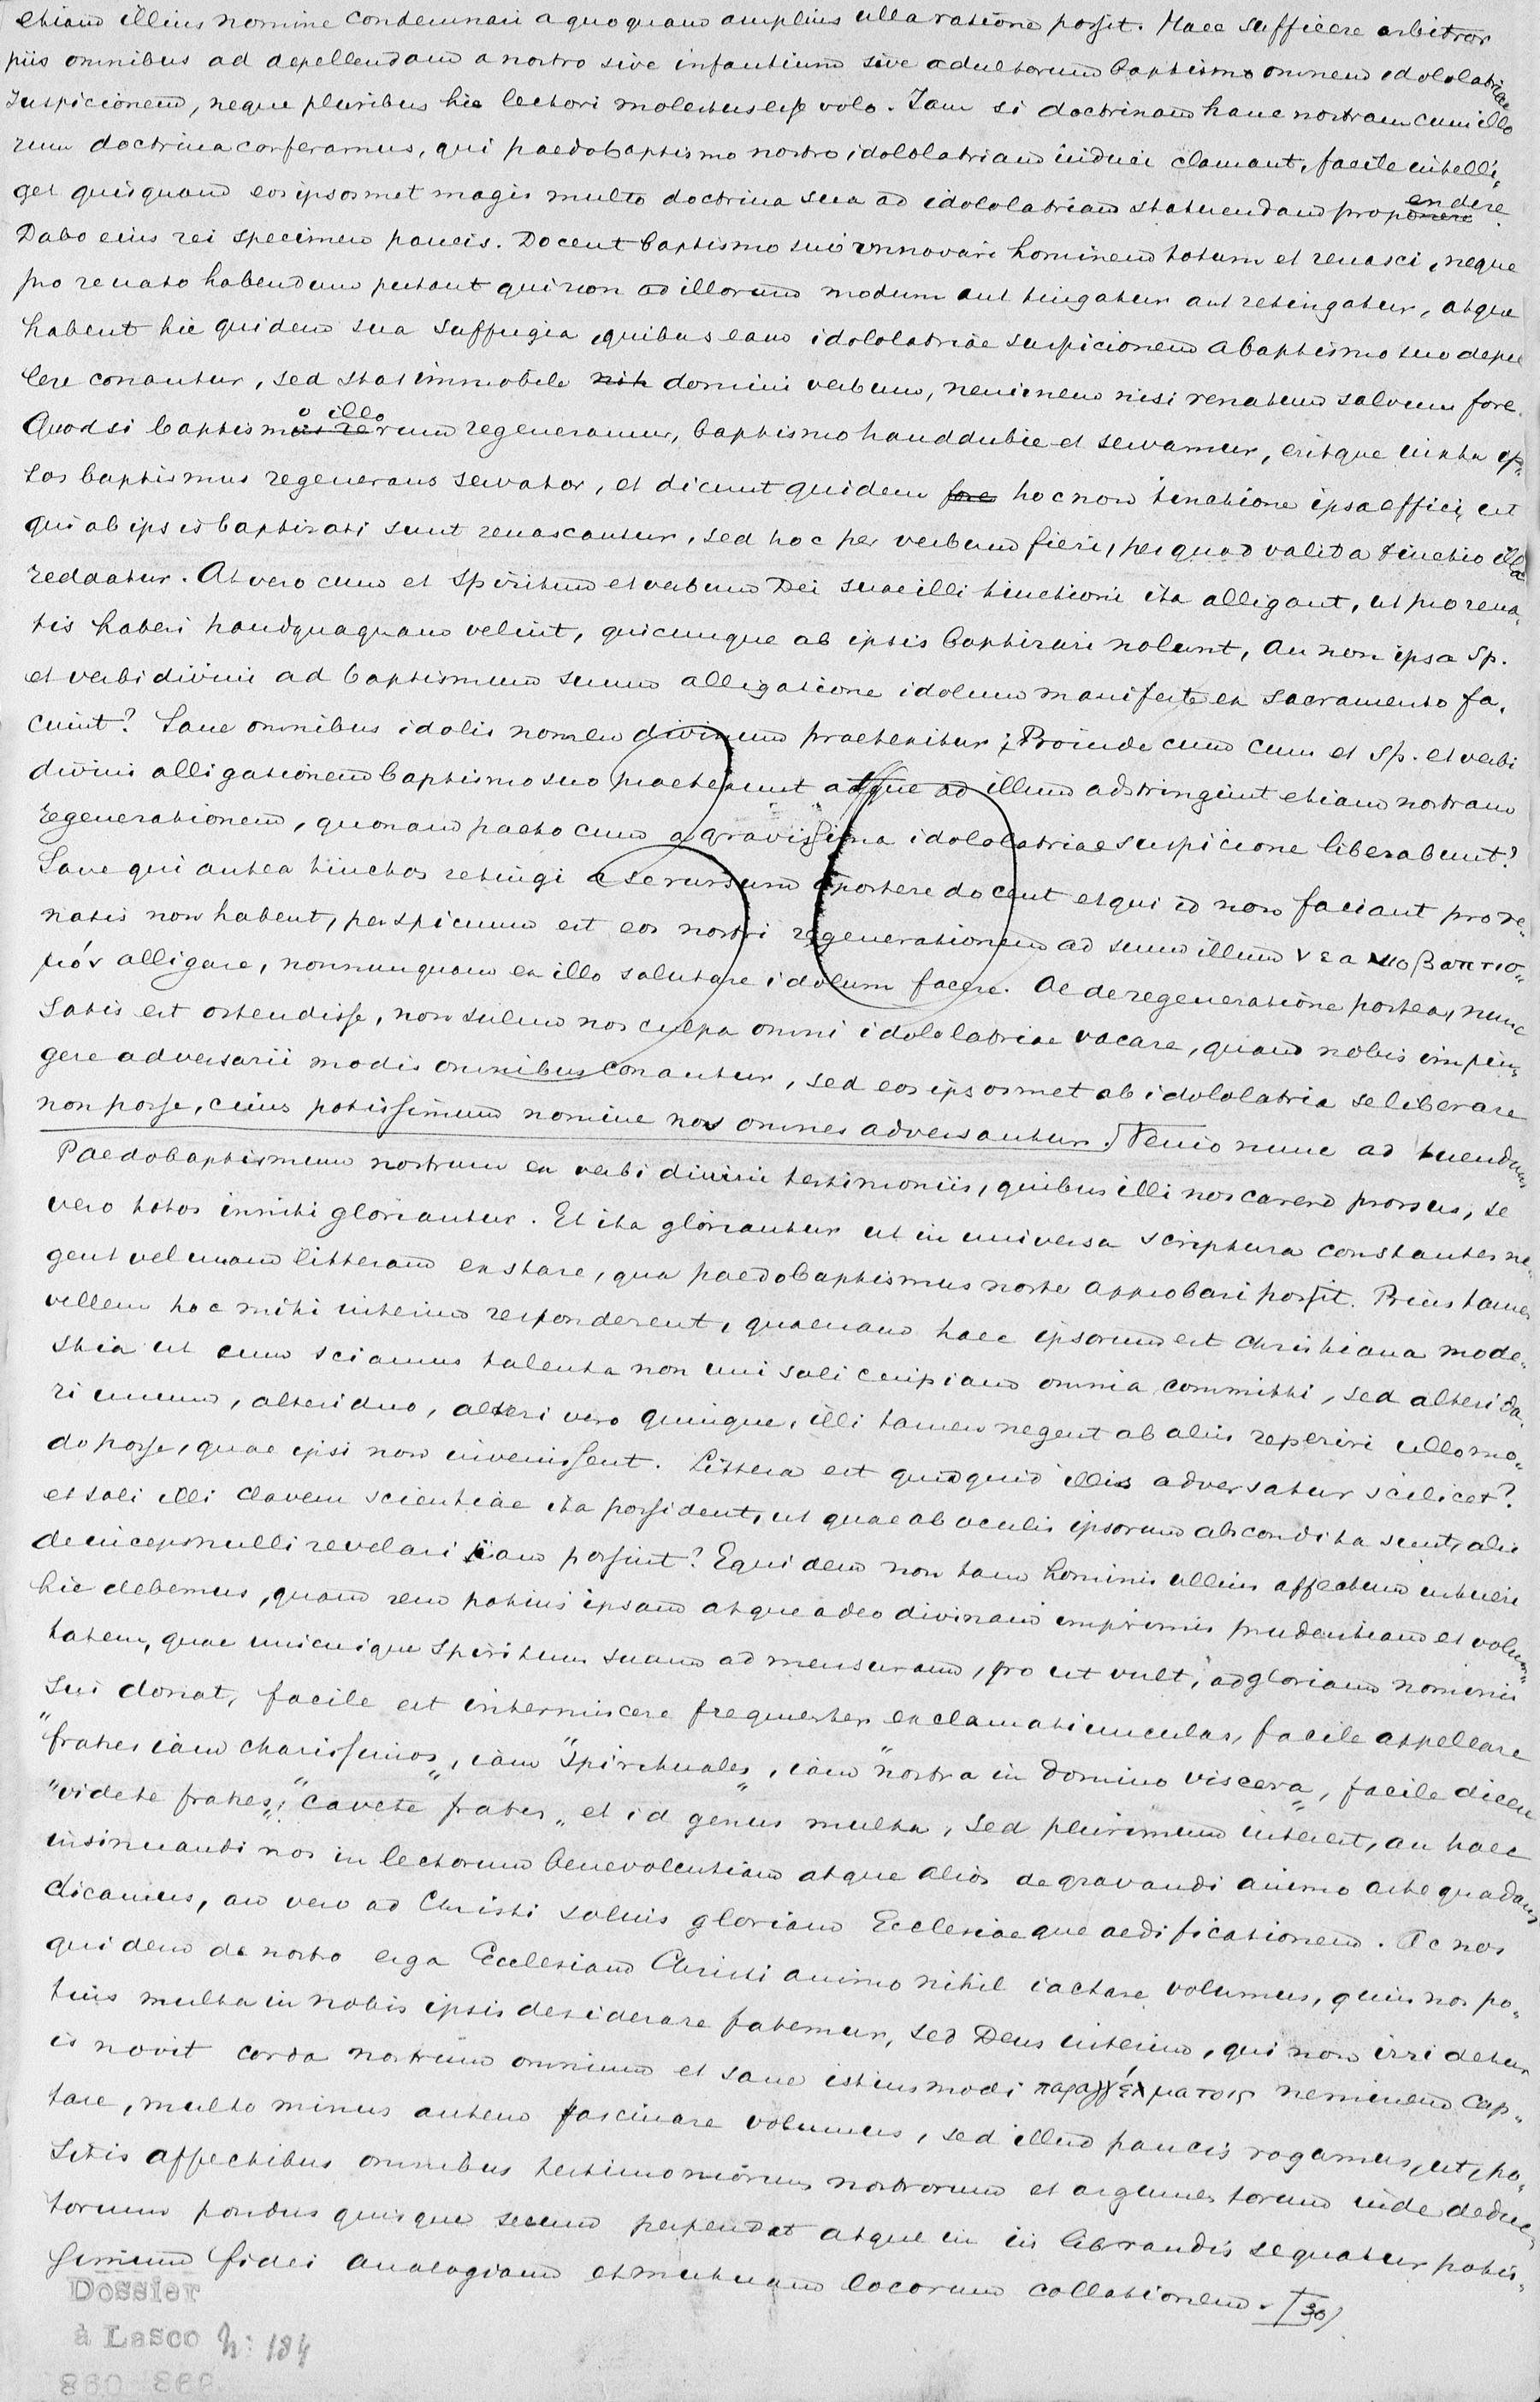 etiam illius nomine condemnari a quoquam amplius ulla ratione possit. Haec sufficere arbitror
piis omnibus ad depellendam a nostro sive infantium sive adultorum baptismo omnem idololatriae
suspicionem, neque pluribus hic lectori molestus esse volo. Iam si doctrinam hanc nostram cum illo
rum doctrina conferamus, qui paedobaptismo nostro idololatriam induci clamant, facile intelli-
get quisquam eos ipsosmet magis multo doctrina sua ad idololatriam statuendam propendere.
Dabo eius rei specimen paucis. Docent baptismo suo innovari hominem totum et renasci, neque
pro renato habendum putant qui non ad illorum modum aut tingatur aut retingatur, atque
habent hic quidem sua suffugia quibus eam idololatriae suspicionem a baptismo suo depel
lere conantur, sed stat immobile nih domini verbum, neminem nisi renatum salvum fore.
Quod si baptismo illorum regeneramur, baptismo haud dubie et servamur, eritque iuxta ip-
sos baptismus regenerans servator, et dicunt quidem fore hoc non tinctione ipsa effici, ut
qui ab ipsis baptizati sunt renascantur, sed hoc per verbum fieri, per quod valida tinctio illa
reddatur. At vero cum et spiritum et verbum Dei suae illi tinctioni ita alligant, ut pro rena-
tis haberi haudquaquam velint, quicunque ab ipsis baptizari nolunt, an non ipsa Sp.
et verbi divini ad baptismum suum alligatione idolum manifeste ex sacramento fa-
ciunt? Sane omnibus idolis nomen divinum praetexitur; Proinde cum cum et Sp. et verbi
divini alligationem baptismo suo praetexunt atque ad illum adstringunt etiam nostram
regenerationem, quonam pacto eum a gravissima idololatriae suspicione liberabunt?
Sane qui antea tinctos retingi a se rursum oportere docent et qui id non faciant pro re-
natis non habent, perspicuum est eos nostri regenerationem ad suum illum νεανιοβαπτισ-
μόν alligare, nonnunquam ex illo salutare idolum facere. Ac de regeneratione postea, nunc
satis est ostendisse, non solum nos culpa omni idololatriae vacare, quam nobis impin-
gere adversarii modis omnibus conantur, sed eos ipsosmet ab idololatria se liberare
non posse, cuius potissimum nomine nos omnes adversantur. Venio nunc ad tuendum
Paedobaptismum nostrum ex verbi divini testimoniis, quibus illi nos carere prorsus, se
vero totos inniti gloriantur. Et ita gloriantur ut in universa scriptura constanter ne-
gent vel unam litteram exstare, qua paedobaptismus noster approbari possit. Prius tamen
vellem hoc mihi interim responderent, quaenam haec ipsorum est Christiana mode-
stia ut cum sciamus talenta non uni soli cuipiam omnia committi, sed alteri da-
ri unum, alteri duo, alteri vero quinque, illi tamen negent ab aliis reperiri ullo mo-
do posse, quae ipsi non invenissent. Littera est quidquid illis adversatur scilicet?
et soli illi clavem scientiae ita possident, ut quae ab oculis ipsorum abscondita sunt, aliis
deinceps nulli revelari iam possint? Equidem non tam hominis ullius affectum intueri
hic debemus, quam rem potius ipsam atque adeo divinam imprimis prudentiam et volun-
tatem, quae unicuique spiritum suum ad mensuram, pro ut vult, ad gloriam nominis
sui donat, facile est intermiscere frequenter exclamatiunculas, facile appellare
"fratres iam charissimos", iam "spirituales", iam "nostra in domino viscera", facile dicere
"videte fratres", "cavete fratres" et id genus multa, sed plurimum interest, an haec
insinuandi nos in lectorum benevolentiam atque alios degravandi animo arte quadam
dicamus, an vero ad Christi solius gloriam Ecclesiaeque aedificationem. Ac nos
quidem de nostro erga Ecclesiam Christi animo nihil iactare volumus, quin nos po-
tius multa in nobis ipsis desiderare fatemur, sed Deus interim, qui non irridetur
is novit corda nostrum omnium et sane istiusmodi παραγγέλματοις neminem cap-
tare, multo minus autem fascinare volumus, sed illud paucis rogamus, ut, po-
sitis affectibus omnibus testimoniorum nostrorum et argumentorum inde deduc-
torum pondus quisque secum perpendat atque in iis librandis sequatur potis-
simum fidei analogiam et mutuam locorum collationem. 30)
Dossier
à Lasco N: 184
860 868